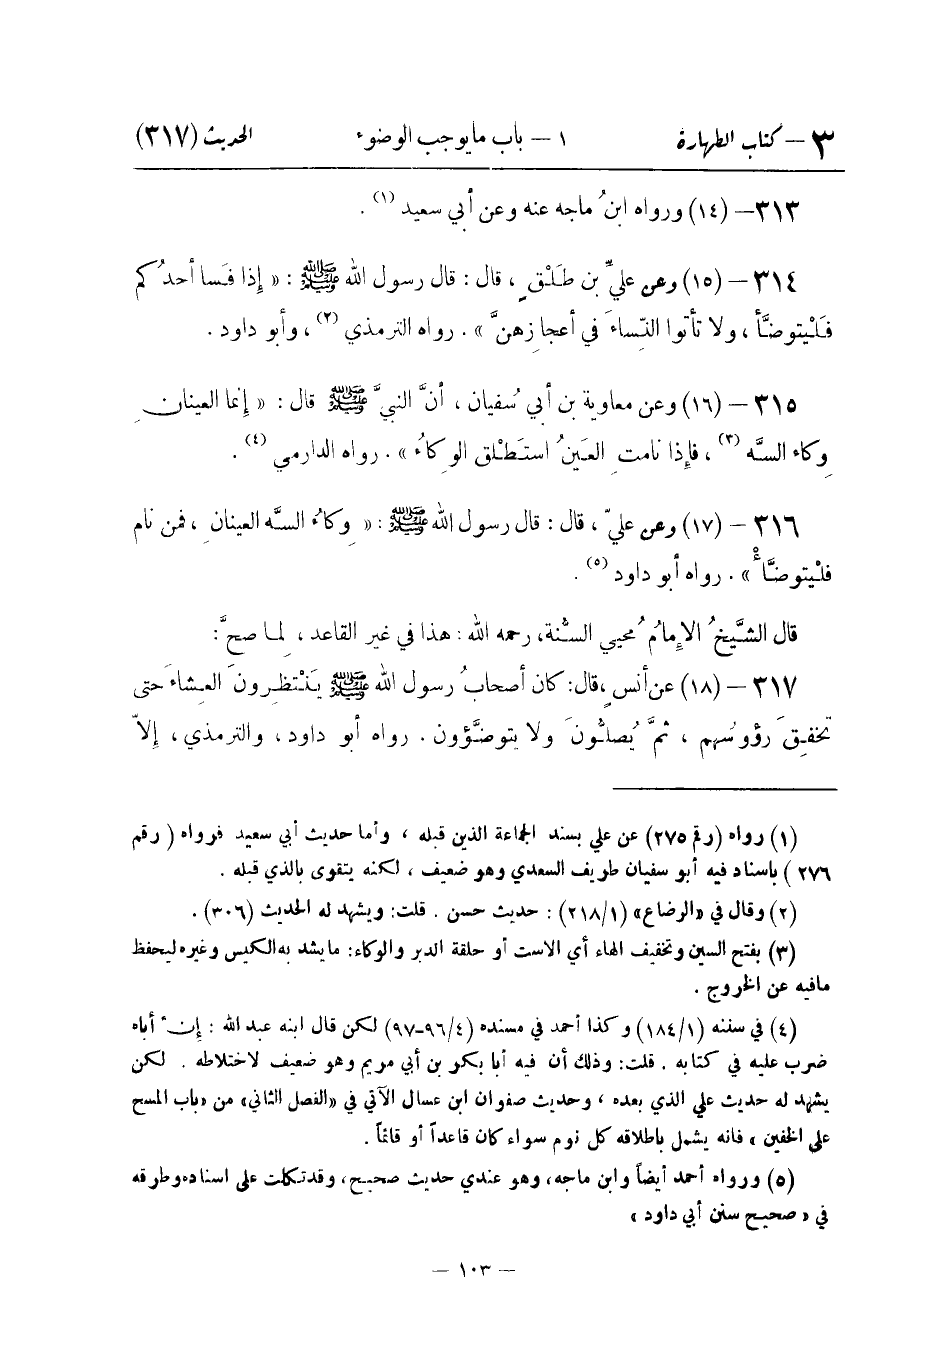 ٣ – كتاب الطهارة ١ – باب مايوجب الوضوء الحديث (٣١٧)
٣١٣– (١٤) ورواه ابنُ ماجه عنه وعن أبي سعيد (١) .
٣١٤ – (١٥) وعن عليِّ بن طَلْقٍ ، قال : قال رسول الله ﷺ : « إذا فَسا أحدُكم
فَلْيتوضَّأ ، ولا تأتوا النِّساءَ في أعجازِهنَّ » . رواه الترمذي (٢) ، وأبو داود .
٣١٥ – (١٦) وعن معاوية بن أبي سُفيان ، أنَّ النبيَّ ﷺ قال : « إنما العينانِ
وِكاء السَّه (٣) ، فإذا نامتِ العَينُ استَطْلق الوِكاءُ » . رواه الدارمي (٤) .
٣١٦ – (١٧) وعن عليّ ، قال : قال رسول الله ﷺ : « وِكاءُ السَّه العينانِ ، فمن نام
فلْيتوضَّأْ » . رواه أبو داود (٥) .
قال الشَّيخُ الإمامُ مُحيي السُّنة، رحمه الله : هذا في غير القاعد ، لِما صحَّ :
٣١٧ – (١٨) عن أنسٍ ،قال: كان أصحابُ رسول الله ﷺ يَنْتظِرونَ العِشاءَ حتى
تخفِقَ رؤوسُهم ، ثمَّ يُصلُّونَ ولا يتوضَّؤون . رواه أبو داود، والترمذي، إلاّ
(١) رواه (رقم ٢٧٥) عن علي بسند الجماعة الذين قبله ، وأما حديث أبي سعيد فرواه ( رقم
٢٧٦ ) باسناد فيه أبو سفيان طريف السعدي وهو ضعيف ، لكنه يتقوى بالذي قبله .
(٢) وقال في «الرضاع» (٢١٨/١) : حديث حسن . قلت: ويشهد له الحديث (٣٠٦) .
(٣) بفتح السين وتخفيف الهاء أي الاست أو حلقة الدبر والوكاء: مايشد به الكيس وغيره ليحفظ
مافيه عن الخروج .
(٤) في سننه (١٨٤/١) وكذا أحمد في مسنده (٩٦/٤–٩٧) لكن قال ابنه عبد الله : إن أباه
ضرب عليه في كتابه . قلت: وذلك أن فيه أبا بكر بن أبي مريم وهو ضعيف لاختلاطه . لكن
يشهد له حديث علي الذي بعده ، وحديث صفوان ابن عسال الآتي في «الفصل الثاني» من «باب المسح
على الخفين » فانه يشمل باطلاقه كل نوم سواء كان قاعداً أو قائماً .
(٥) ورواه أحمد أيضاً وابن ماجه، وهو عندي حديث صحيح، وقد تكلمت على اسناده وطرقه
في « صحيح سنن أبي داود »
– ١٠٣ –